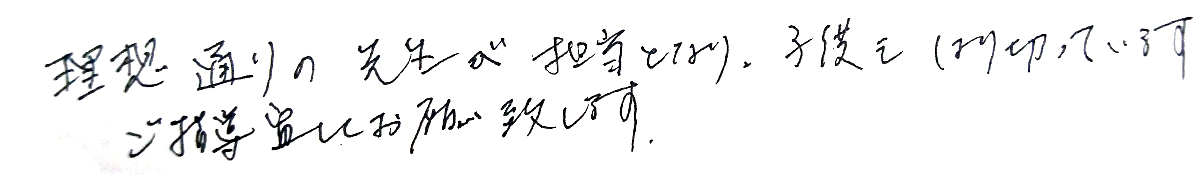 理想通りの先生が担当となり、子供もはり切っています
ご指導宜しくお願い致します。